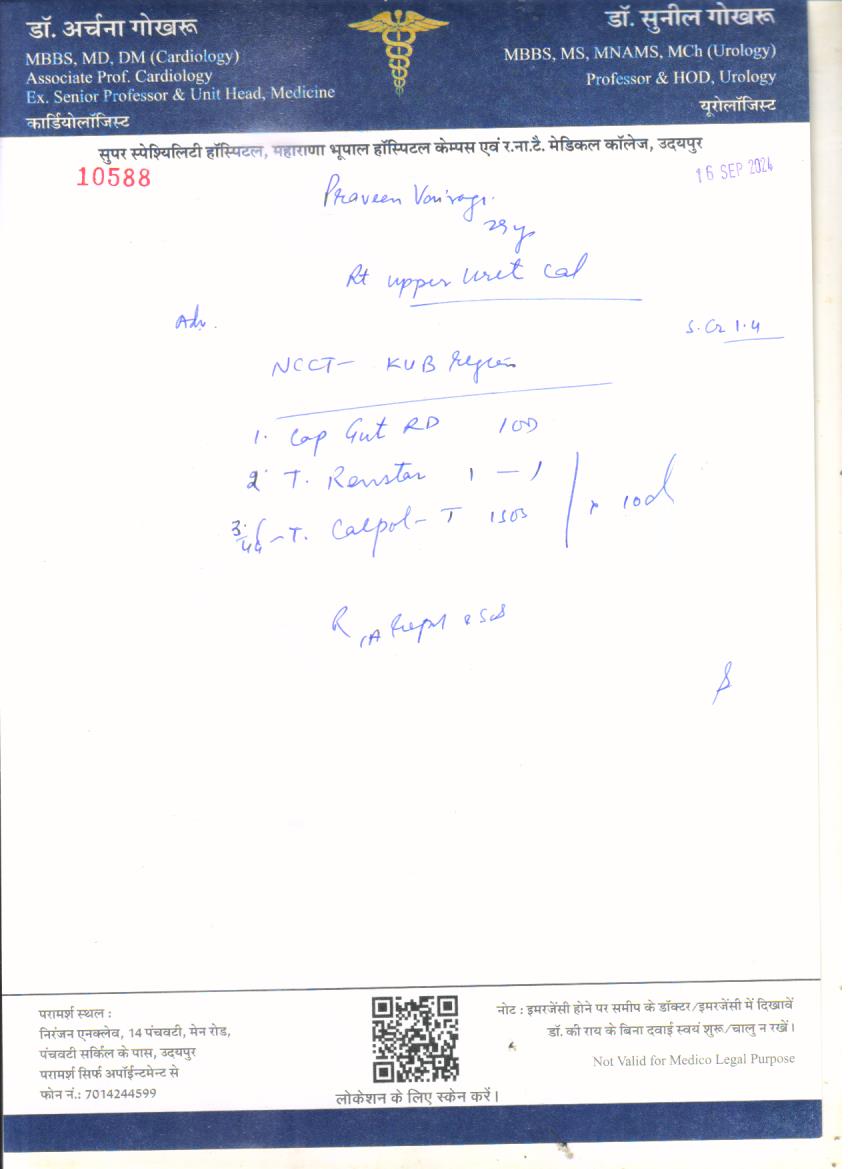 डॉ. अर्चना गोखरू
MBBS, MD, DM (Cardiology)
Associate Prof. Cardiology
Ex. Senior Professor & Unit Head, Medicine
कार्डियोलॉजिस्ट
डॉ. सुनील गोखरू
MBBS, MS, MNAMS, MCh (Urology)
Professor & HOD, Urology
यूरोलॉजिस्ट
सुपर स्पेश्यिलिटी हॉस्पिटल, महाराणा भूपाल हॉस्पिटल केम्पस एवं र.ना.टै. मेडिकल कॉलेज, उदयपुर
10588
16 SEP 2024
Praveen
Rt upper Uret Cal
Adv.
S. Cr 1.4
NCCT- KUB Region
1. Cap Gut RD 1 OD
2 T. 1 - 1
3. T. Calpol-T x 10d
परामर्श स्थल :
निरंजन एनक्लेव, 14 पंचवटी, मेन रोड,
पंचवटी सर्किल के पास, उदयपुर
परामर्श सिर्फ अपॉईन्टमेन्ट से
फोन नं.: 7014244599
लोकेशन के लिए स्केन करें।
नोट : इमरजेंसी होने पर समीप के डॉक्टर/इमरजेंसी में दिखावें
डॉ. की राय के बिना दवाई स्वयं शुरू/चालु न रखें।
Not Valid for Medico Legal Purpose